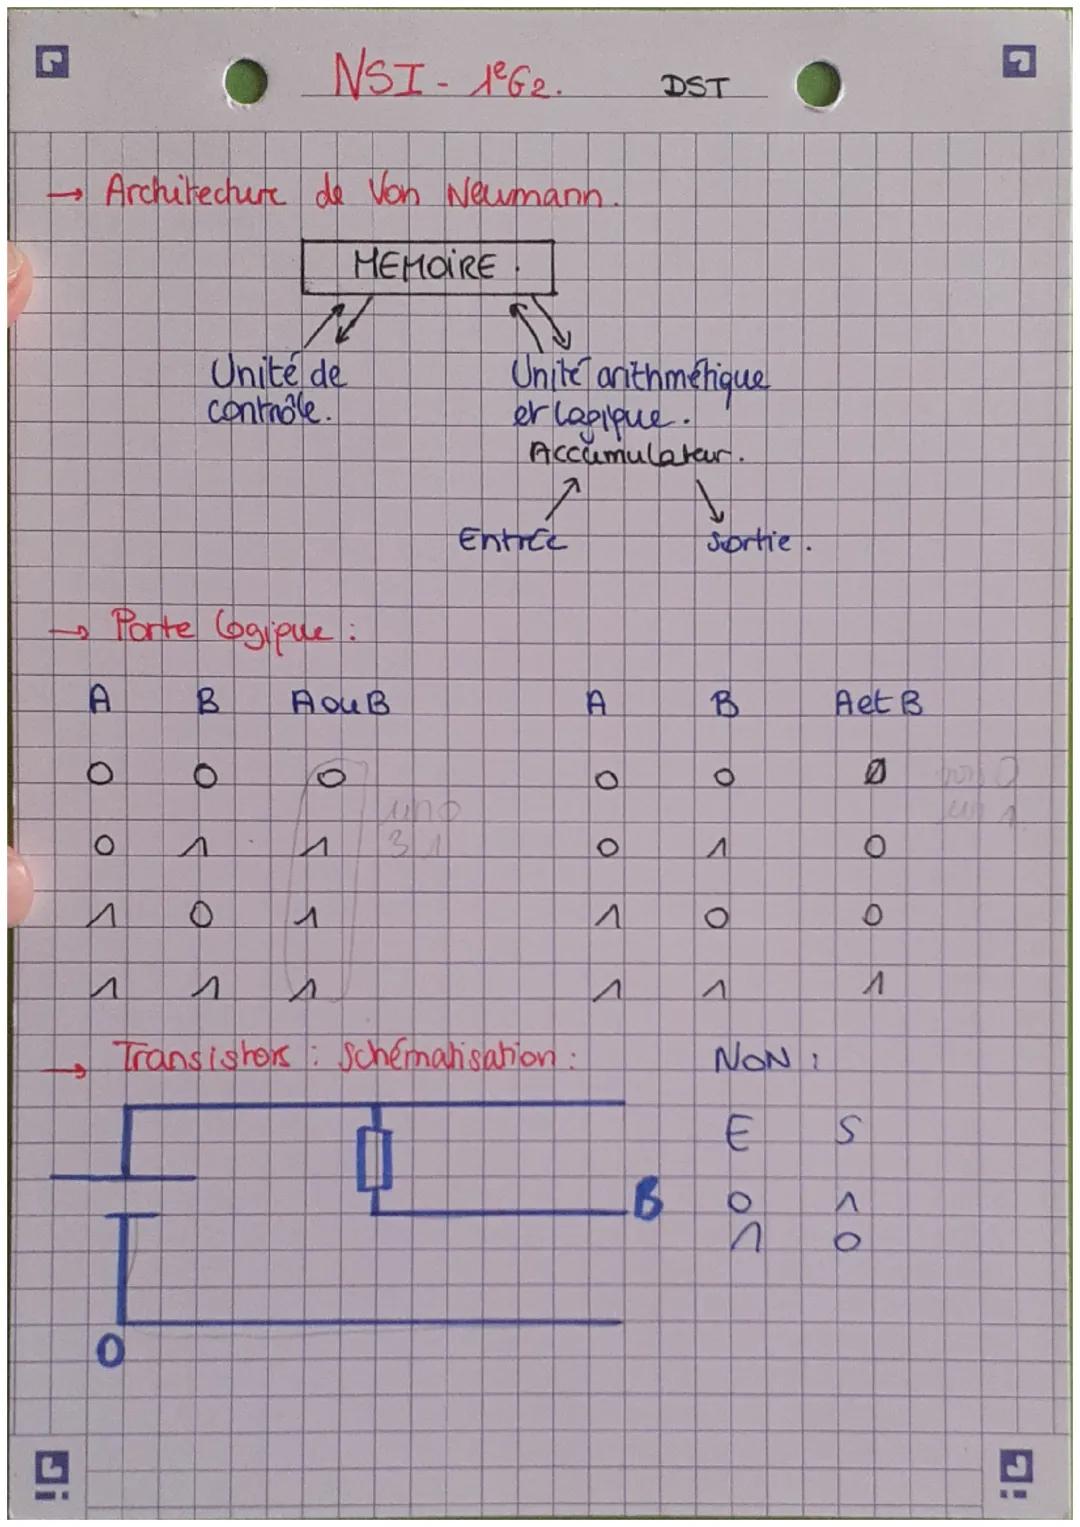 NSI - 1eG2. DST
→ Architecture de Von Neumann.
MEMOIRE.
Unité de
contrôle.
Unité arithmétique
et logique.
Accumulateur.
Entrée
Sortie.
→ Porte logique :
A B A ou B
0 0 0
0 1 1
1 0 1
1 1 1
un 0
3 1
A B A et B
0 0 0
0 1 0
1 0 0
1 1 1
un 1
→ Transistors : Schématisation :
B
0
NON :
E S
0 1
1 0